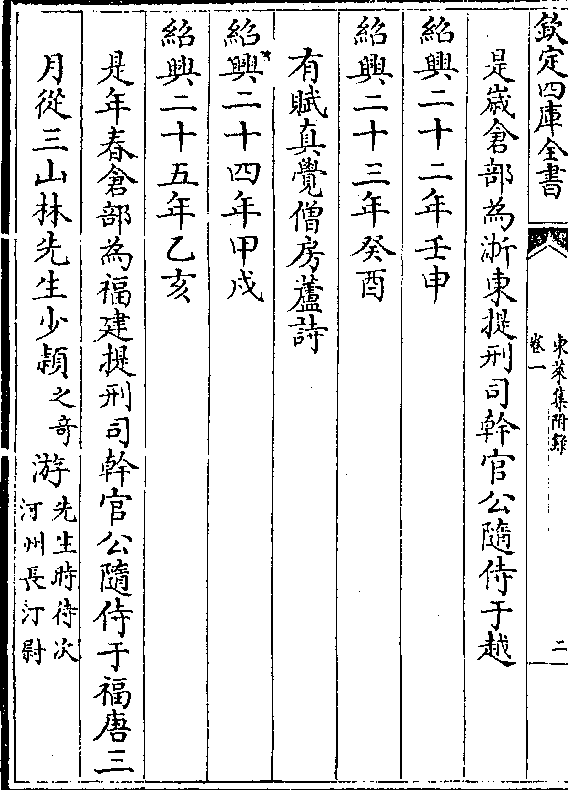 欽定四庫全書
東萊集附錄
卷一
二
是嵗倉部為浙東提刑司幹官公隨侍于越
紹興二十二年壬申
紹興二十三年癸酉
有賦真覺僧房蘆詩
紹興二十四年甲戌
紹興二十五年乙亥
是年春倉部為福建提刑司幹官公隨侍于福唐三
月從三山林先生少穎之奇游先生時待次
汀州長汀尉